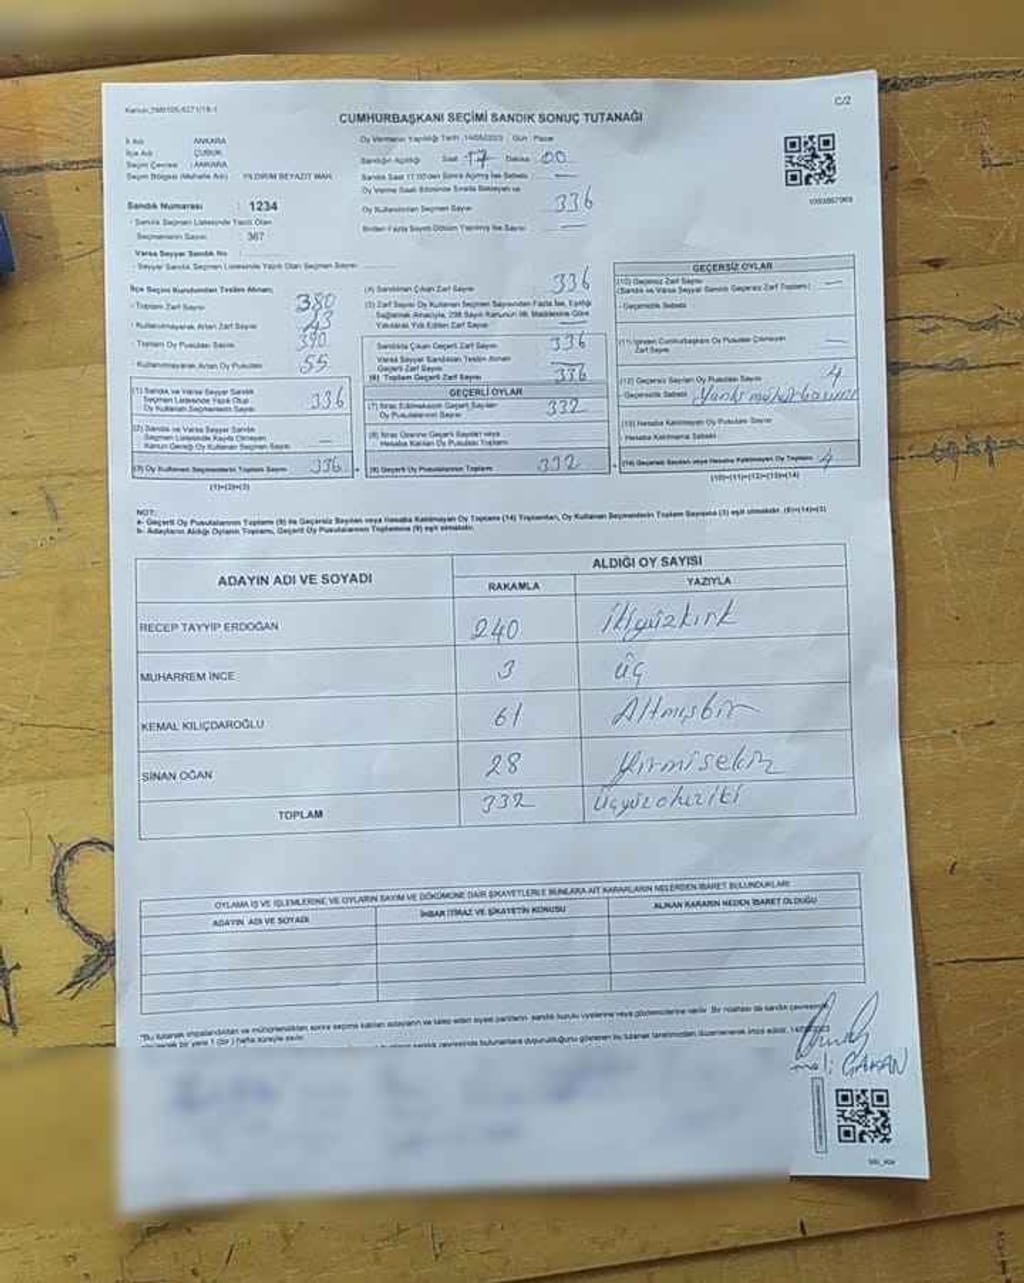 C/2
CUMHURBAŞKANI SEÇİMİ SANDIK SONUÇ TUTANAĞI
İl Adı : ANKARA
İlçe Adı : ÇUBUK
Seçim Çevresi : ANKARA
Seçim Bölgesi (Mahalle Adı) : YILDIRIM BEYAZIT MAH.
Oy Vermenin Yapıldığı Tarih : 14/05/2023 Gün : Pazar
Sandığın Açıldığı Saat 17 Dakika 00
Sandık Saat 17:00'den Sonra Açılmış İse Sebebi : —
Oy Verme Saati Bitiminde Sırada Bekleyen ve
Oy Kullandırılan Seçmen Sayısı 336
Birden Fazla Sayım Döküm Yapılmış İse Sayısı —
Sandık Numarası : 1234
- Sandık Seçmen Listesinde Yazılı Olan
Seçmenlerin Sayısı : 367
Varsa Seyyar Sandık No :
- Seyyar Sandık Seçmen Listesinde Yazılı Olan Seçmen Sayısı
İlçe Seçim Kurulundan Teslim Alınan;
- Toplam Zarf Sayısı 380
- Kullanılmayarak Artan Zarf Sayısı 43
- Toplam Oy Pusulası Sayısı 390
- Kullanılmayarak Artan Oy Pusulası 55
(1) Sandık ve Varsa Seyyar Sandık
Seçmen Listesinde Yazılı Olup
Oy Kullanan Seçmenlerin Sayısı 336
(2) Sandık ve Varsa Seyyar Sandık
Seçmen Listesinde Kayıtlı Olmayan
Kanun Gereği Oy Kullanan Seçmen Sayısı —
(3) Oy Kullanan Seçmenlerin Toplam Sayısı 336
(1)+(2)=(3)
(4) Sandıktan Çıkan Zarf Sayısı 336
(5) Zarf Sayısı Oy Kullanan Seçmen Sayısından Fazla İse, Eşitliği
Sağlamak Amacıyla, 298 Sayılı Kanunun 98. Maddesine Göre
Yakılarak Yok Edilen Zarf Sayısı —
Sandıkta Çıkan Geçerli Zarf Sayısı 336
Varsa Seyyar Sandıktan Teslim Alınan
Geçerli Zarf Sayısı —
(6) Toplam Geçerli Zarf Sayısı 336
GEÇERLİ OYLAR
(7) İtiraz Edilmeksizin Geçerli Sayılan
Oy Pusulalarının Sayısı 332
(8) İtiraz Üzerine Geçerli Sayılan veya
Hesaba Katılan Oy Pusulası Toplamı
(9) Geçerli Oy Pusulalarının Toplamı 332
GEÇERSİZ OYLAR
(10) Geçersiz Zarf Sayısı
(Sandık ve Varsa Seyyar Sandık Geçersiz Zarf Toplamı) —
- Geçersizlik Sebebi
(11) İçinden Cumhurbaşkanı Oy Pusulası Çıkmayan
Zarf Sayısı —
(12) Geçersiz Sayılan Oy Pusulası Sayısı 4
Geçersizlik Sebebi
(13) Hesaba Katılmayan Oy Pusulası Sayısı
Hesaba Katılmama Sebebi
(14) Geçersiz Sayılan veya Hesaba Katılmayan Oy Toplamı 4
(10)+(11)+(12)+(13)=(14)
NOT:
a- Geçerli Oy Pusulalarının Toplamı (9) ile Geçersiz Sayılan veya Hesaba Katılmayan Oy Toplamı (14) Toplamları, Oy Kullanan Seçmenlerin Toplam Sayısına (3) eşit olmalıdır. (9)+(14)=(3)
b- Adayların Aldığı Oyların Toplamı, Geçerli Oy Pusulalarının Toplamına (9) eşit olmalıdır.
ADAYIN ADI VE SOYADI
ALDIĞI OY SAYISI
RAKAMLA YAZIYLA
RECEP TAYYİP ERDOĞAN 240 İkiyüzkırk
MUHARREM İNCE 3 üç
KEMAL KILIÇDAROĞLU 61 Altmışbir
SİNAN OĞAN 28 Yirmisekiz
TOPLAM 332 üçyüzotuziki
OYLAMA İŞ VE İŞLEMLERİNE VE OYLARIN SAYIM VE DÖKÜMÜNE DAİR ŞİKAYETLERLE BUNLARA AİT KARARLARIN NELERDEN İBARET BULUNDUKLARI
ADAYIN ADI VE SOYADI
İHBAR İTİRAZ VE ŞİKAYETİN KONUSU
ALINAN KARARIN NEDEN İBARET OLDUĞU